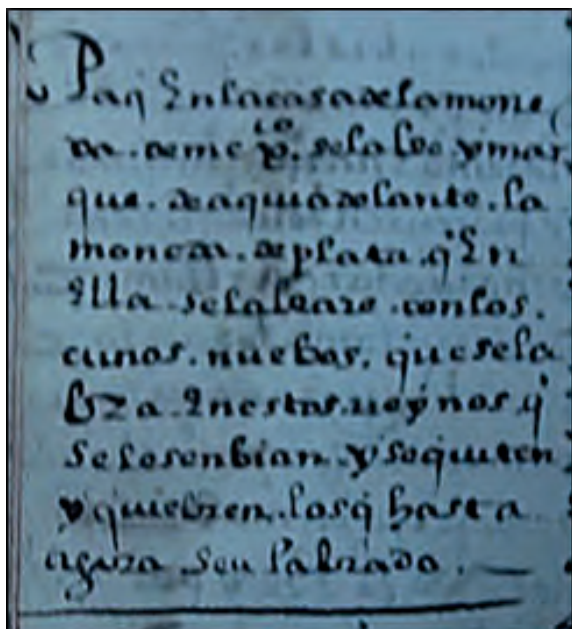 Paq̃ En la casa de la mone
da. de mexco. se labre y mar
que. de aqui adelante. la
moneda. de plata. q̃ En
Ella se labrare. con los.
cunos. nuebos. que se la
bra. En estos. reynos. q̃
se les enbian. y se quiten
y quiebren. los q̃ hasta
agora seu labrado.